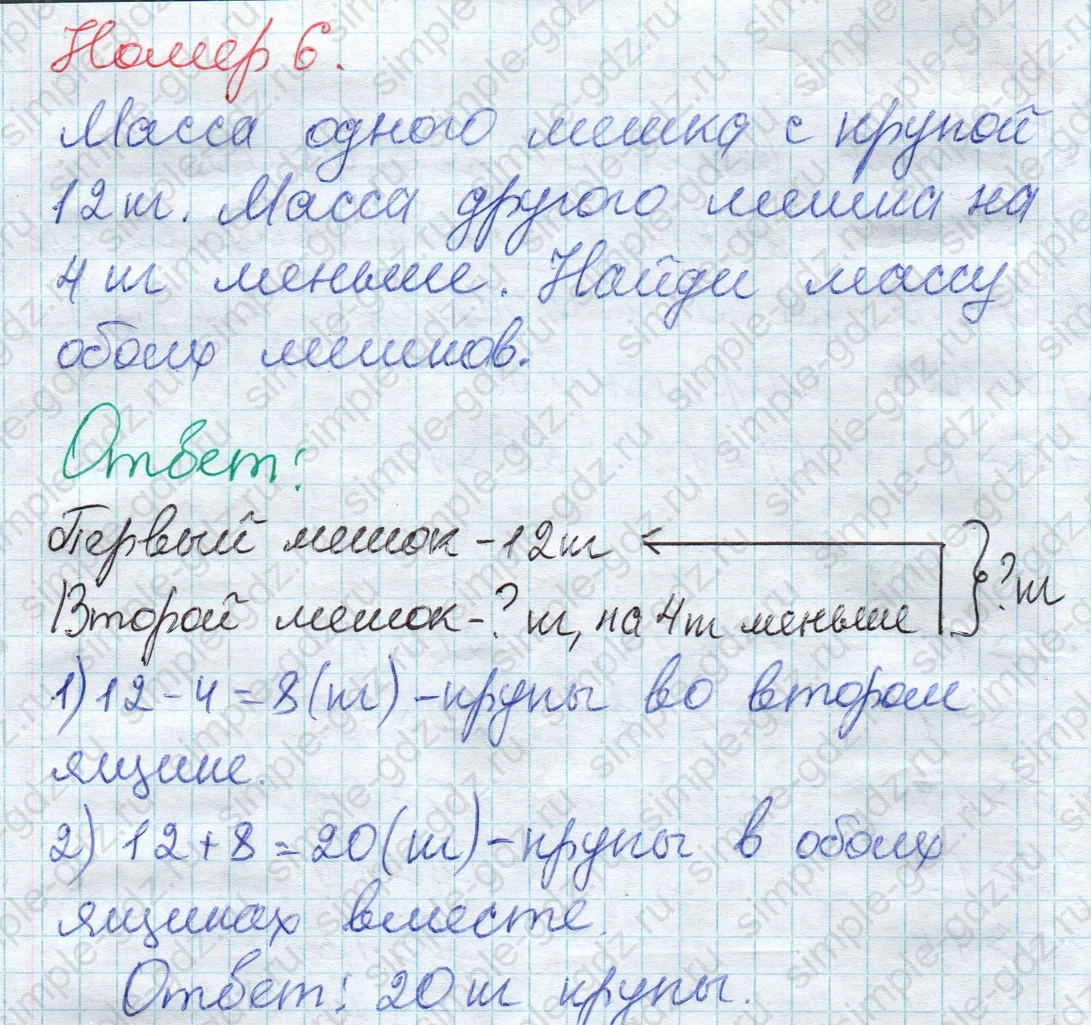 Номер 6.
Масса одного мешка с крупой
12 кг. Масса другого мешка на
4 кг меньше. Найди массу
обоих мешков.
Ответ:
Первый мешок - 12 кг
Второй мешок - ? кг, на 4 кг меньше } ? кг
1) 12 - 4 = 8 (кг) - крупы во втором
ящике.
2) 12 + 8 = 20 (кг) - крупы в обоих
ящиках вместе.
Ответ: 20 кг крупы.
simple-gdz.ru